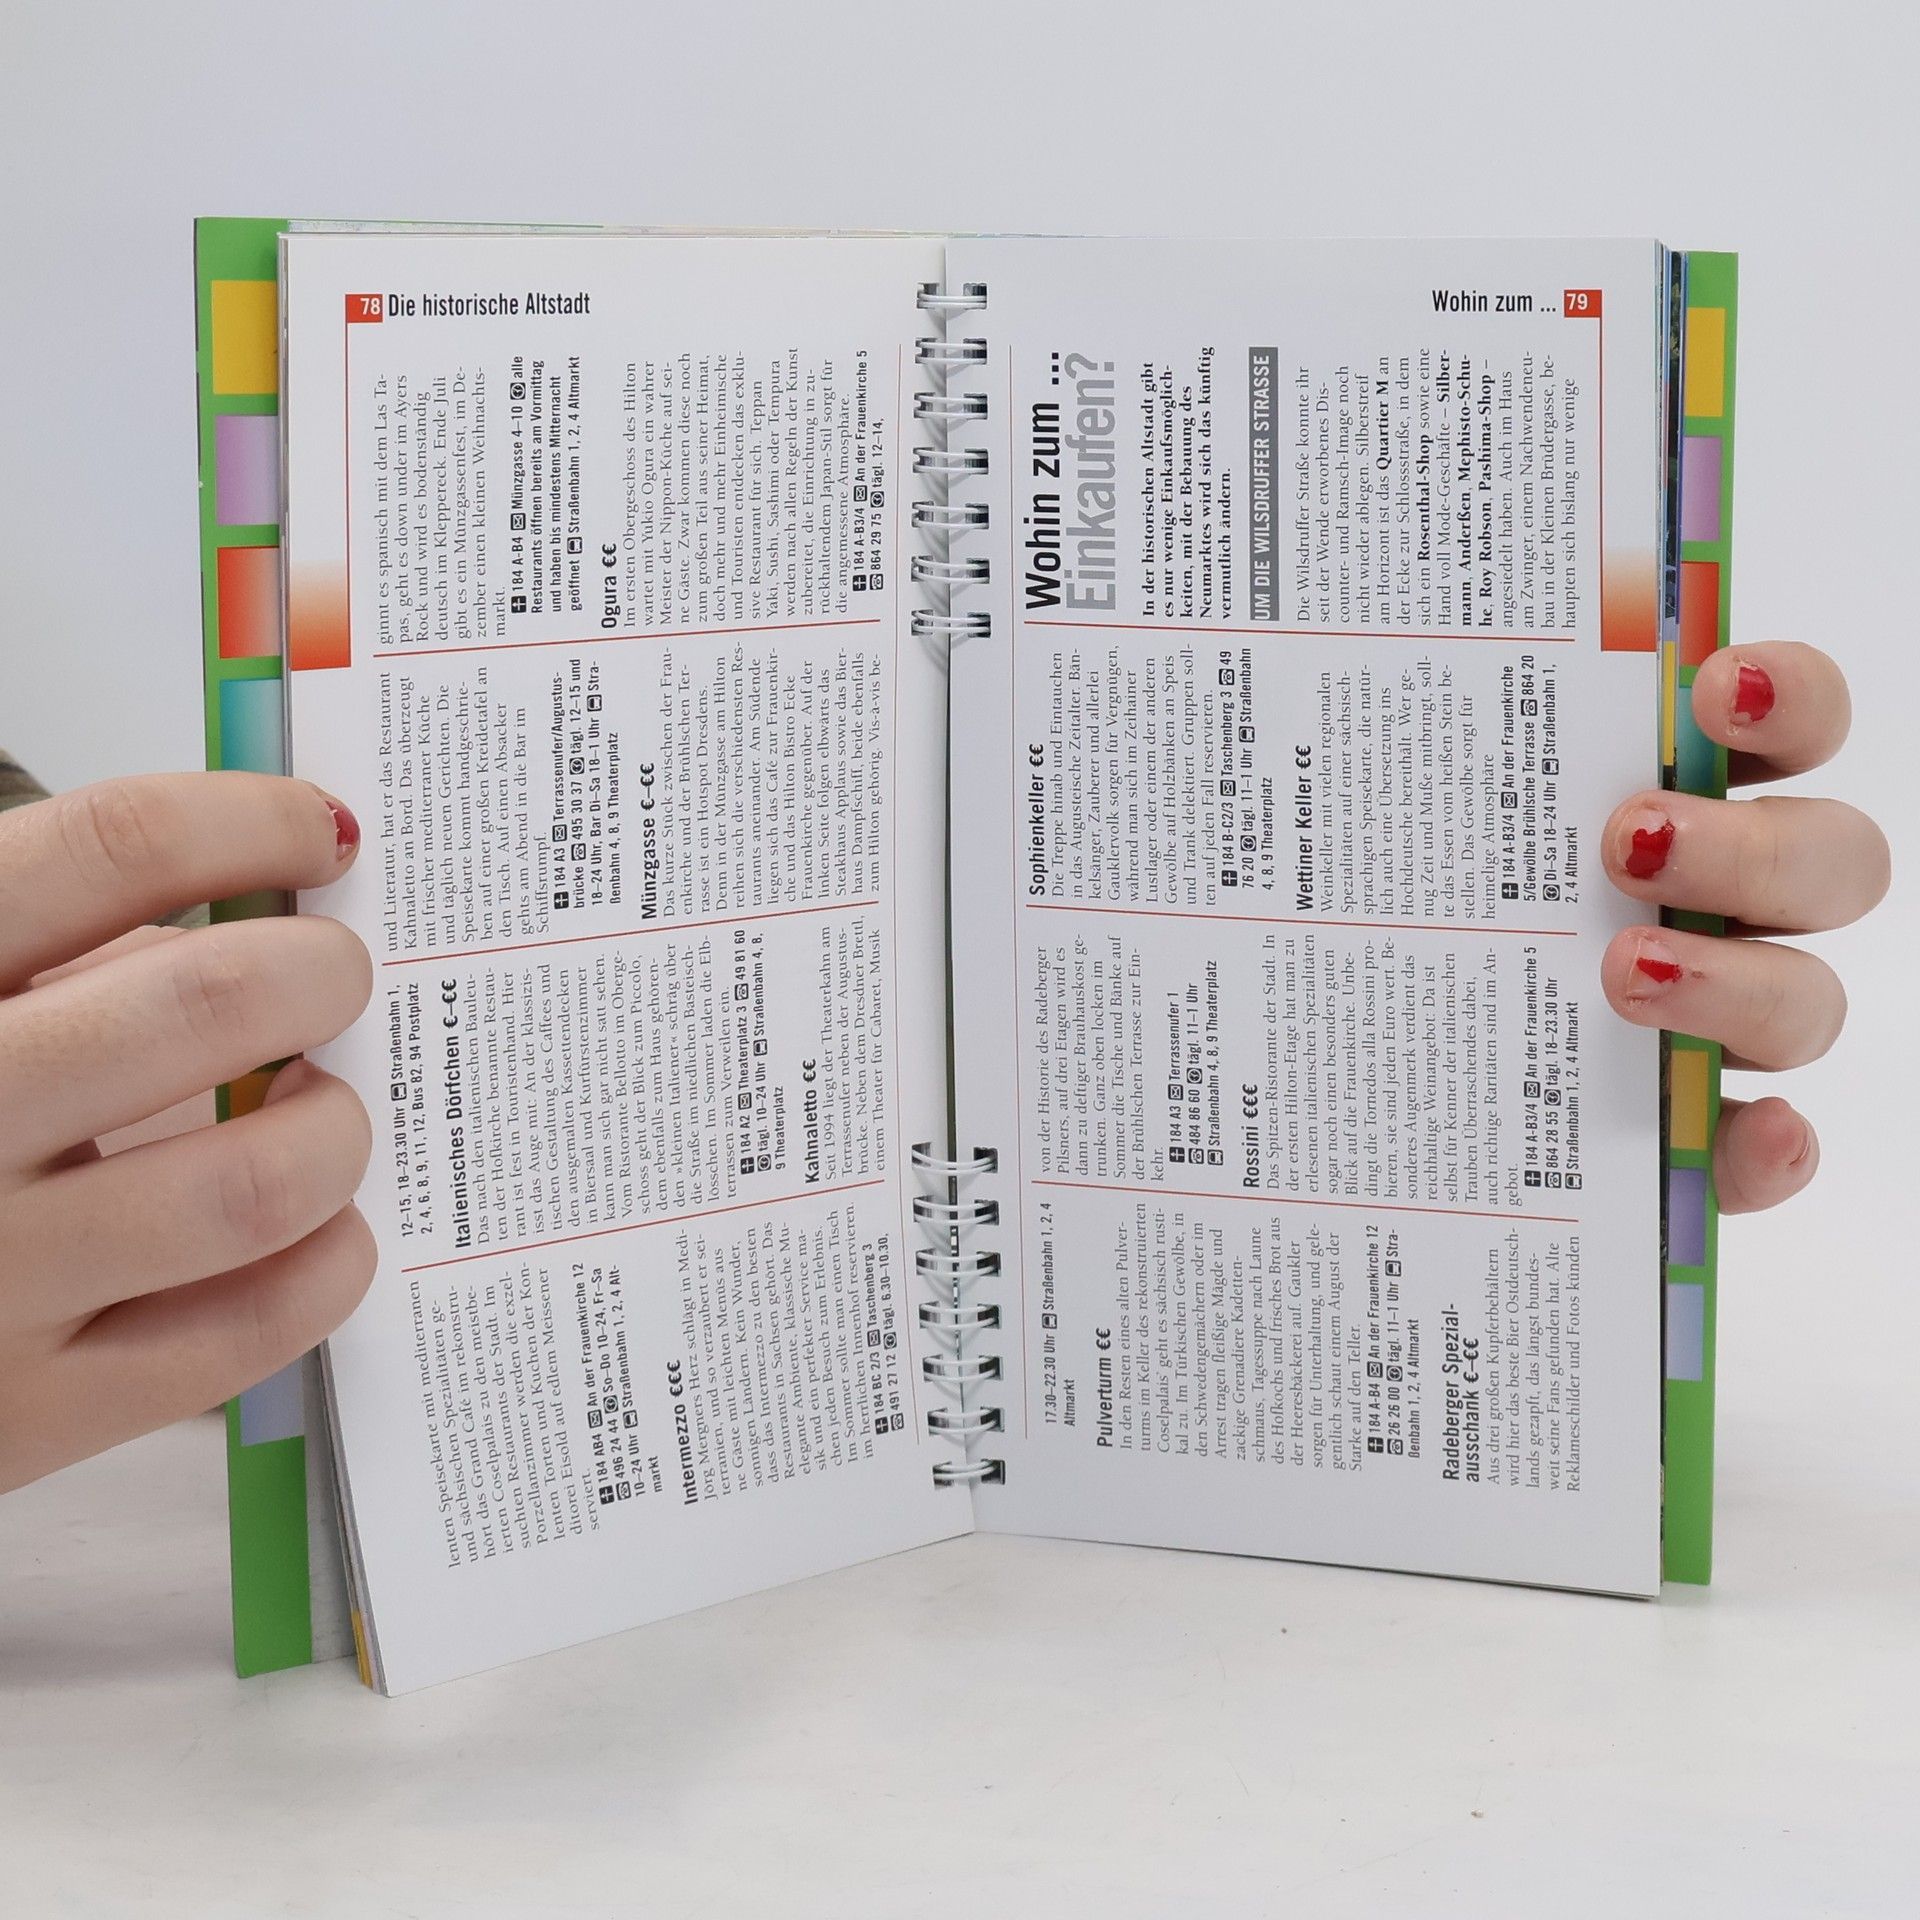 78 Die historische Altstadt
lenten Speisekarte mit mediterranen
und sächsischen Spezialitäten ge-
hört das Grand Café im rekonstru-
ierten Coselpalais zu den meistbe-
suchten Restaurants der Stadt. Im
Porzellanzimmer werden die exzel-
lenten Torten und Kuchen der Kon-
ditorei Eisold auf edlem Meissener
serviert.
184 AB4 An der Frauenkirche 12
496 24 44 So–Do 10–24, Fr–Sa
10–24 Uhr Straßenbahn 1, 2, 4 Alt-
markt
Intermezzo €€€
Jörg Mergners Herz schlägt in Medi-
terranien, und so verzaubert er sei-
ne Gäste mit leichten Menüs aus
sonnigen Ländern. Kein Wunder,
dass das Intermezzo zu den besten
Restaurants in Sachsen gehört. Das
elegante Ambiente, klassische Mu-
sik und ein perfekter Service ma-
chen jeden Besuch zum Erlebnis.
Im Sommer sollte man einen Tisch
im herrlichen Innenhof reservieren.
184 BC 2/3 Taschenberg 3
491 27 12 tägl. 6.30–10.30,
12–15, 18–23.30 Uhr Straßenbahn 1,
2, 4, 6, 8, 9, 11, 12, Bus 82, 94 Postplatz
Italienisches Dörfchen €–€€
Das nach den italienischen Bauleu-
ten der Hofkirche benannte Restau-
rant ist fest in Touristenhand. Hier
isst das Auge mit: An der klassizis-
tischen Gestaltung des Caffees und
den ausgemalten Kassettendecken
in Biersaal und Kurfürstenzimmer
kann man sich gar nicht satt sehen.
Vom Ristorante Bellotto im Oberge-
schoss geht der Blick zum Piccolo,
dem ebenfalls zum Haus gehören-
den »kleinen Italiener« schräg über
die Straße im niedlichen Basteisch-
lösschen. Im Sommer laden die Elb-
terrassen zum Verweilen ein.
184 A2 Theaterplatz 3 49 81 60
tägl. 10–24 Uhr Straßenbahn 4, 8,
9 Theaterplatz
Kahnaletto €€
Seit 1994 liegt der Theaterkahn am
Terrassenufer neben der Augustus-
brücke. Neben dem Dresdner Brettl,
einem Theater für Cabaret, Musik
und Literatur, hat er das Restaurant
Kahnaletto an Bord. Das überzeugt
mit frischer mediterraner Küche
und täglich neuen Gerichten. Die
Speisekarte kommt handgeschrie-
ben auf einer großen Kreidetafel an
den Tisch. Auf einen Absacker
gehts am Abend in die Bar im
Schiffsrumpf.
184 A3 Terrassenufer/Augustus-
brücke 495 30 37 tägl. 12–15 und
18–24 Uhr, Bar Di–Sa 18–1 Uhr Stra-
ßenbahn 4, 8, 9 Theaterplatz
Münzgasse €–€€
Das kurze Stück zwischen der Frau-
enkirche und der Brühlschen Ter-
rasse ist ein Hotspot Dresdens.
Denn in der Münzgasse am Hilton
reihen sich die verschiedensten Res-
taurants aneinander. Am Südende
liegen sich das Café zur Frauenkir-
che und das Hilton Bistro Ecke
Frauenkirche gegenüber. Auf der
linken Seite folgen elbwärts das
Steakhaus Applaus sowie das Bier-
haus Dampfschiff, beide ebenfalls
zum Hilton gehörig. Vis-à-vis be-
ginnt es spanisch mit dem Las Ta-
pas, geht es down under im Ayers
Rock und wird es bodenständig
deutsch im Kleppereck. Ende Juli
gibt es ein Münzgassenfest, im De-
zember einen kleinen Weihnachts-
markt.
184 A-B4 Münzgasse 4–10 alle
Restaurants öffnen bereits am Vormittag
und haben bis mindestens Mitternacht
geöffnet Straßenbahn 1, 2, 4 Altmarkt
Ogura €€
Im ersten Obergeschoss des Hilton
wartet mit Yukio Ogura ein wahrer
Meister der Nippon-Küche auf sei-
ne Gäste. Zwar kommen diese noch
zum großen Teil aus seiner Heimat,
doch mehr und mehr Einheimische
und Touristen entdecken das exklu-
sive Restaurant für sich. Teppan
Yaki, Sushi, Sashimi oder Tempura
werden nach allen Regeln der Kunst
zubereitet, die Einrichtung in zu-
rückhaltendem Japan-Stil sorgt für
die angemessene Atmosphäre.
184 A-B3/4 An der Frauenkirche 5
864 29 75 tägl. 12–14,
Wohin zum ... 79
17.30–22.30 Uhr Straßenbahn 1, 2, 4
Altmarkt
Pulverturm €€
In den Resten eines alten Pulver-
turms im Keller des rekonstruierten
Coselpalais' geht es sächsisch rusti-
kal zu. Im Türkischen Gewölbe, in
den Schwedengemächern oder im
Arrest tragen fleißige Mägde und
zackige Grenadiere Kadetten-
schmaus, Tagessuppe nach Laune
des Hofkochs und frisches Brot aus
der Heeresbäckerei auf. Gaukler
sorgen für Unterhaltung, und gele-
gentlich schaut einem August der
Starke auf den Teller.
184 A-B4 An der Frauenkirche 12
26 26 00 tägl. 11–1 Uhr Stra-
ßenbahn 1, 2, 4 Altmarkt
Radeberger Spezial-
ausschank €–€€
Aus drei großen Kupferbehältern
wird hier das beste Bier Ostdeutsch-
lands gezapft, das längst bundes-
weit seine Fans gefunden hat. Alte
Reklameschilder und Fotos künden
von der Historie des Radeberger
Pilsners, auf drei Etagen wird es
dann zu deftiger Brauhauskost ge-
trunken. Ganz oben locken im
Sommer die Tische und Bänke auf
der Brühlschen Terrasse zur Ein-
kehr.
184 A3 Terrassenufer 1
484 86 60 tägl. 11–1 Uhr
Straßenbahn 4, 8, 9 Theaterplatz
Rossini €€€
Das Spitzen-Ristorante der Stadt. In
der ersten Hilton-Etage hat man zu
erlesenen italienischen Spezialitäten
sogar noch einen besonders guten
Blick auf die Frauenkirche. Unbe-
dingt die Tornedos alla Rossini pro-
bieren, sie sind jeden Euro wert. Be-
sonderes Augenmerk verdient das
reichhaltige Weinangebot: Da ist
selbst für Kenner der italienischen
Trauben Überraschendes dabei,
auch richtige Raritäten sind im An-
gebot.
184 A-B3/4 An der Frauenkirche 5
864 28 55 tägl. 18–23.30 Uhr
Straßenbahn 1, 2, 4 Altmarkt
Sophienkeller €€
Die Treppe hinab und Eintauchen
in das Augusteische Zeitalter. Bän-
kelsänger, Zauberer und allerlei
Gauklervolk sorgen für Vergnügen,
während man sich im Zeithainer
Lustlager oder einem der anderen
Gewölbe auf Holzbänken an Speis
und Trank delektiert. Gruppen soll-
ten auf jeden Fall reservieren.
184 B-C2/3 Taschenberg 3 49
76 20 tägl. 11–1 Uhr Straßenbahn
4, 8, 9 Theaterplatz
Wettiner Keller €€
Weinkeller mit vielen regionalen
Spezialitäten auf einer sächsisch-
sprachigen Speisekarte, die natür-
lich auch eine Übersetzung ins
Hochdeutsche bereithält. Wer ge-
nug Zeit und Muße mitbringt, soll-
te das Essen vom heißen Stein be-
stellen. Das Gewölbe sorgt für
heimelige Atmosphäre
184 A-B3/4 An der Frauenkirche
5/Gewölbe Brühlsche Terrasse 864 20
Di–Sa 18–24 Uhr Straßenbahn 1,
2, 4 Altmarkt
Wohin zum ...
Einkaufen?
In der historischen Altstadt gibt
es nur wenige Einkaufsmöglich-
keiten, mit der Bebauung des
Neumarktes wird sich das künftig
vermutlich ändern.
UM DIE WILSDRUFFER STRASSE
Die Wilsdruffer Straße konnte ihr
seit der Wende erworbenes Dis-
counter- und Ramsch-Image noch
nicht wieder ablegen. Silberstreif
am Horizont ist das Quartier M an
der Ecke zur Schlossstraße, in dem
sich ein Rosenthal-Shop sowie eine
Hand voll Mode-Geschäfte – Silber-
mann, Anderßen, Mephisto-Schu-
he, Roy Robson, Pashima-Shop –
angesiedelt haben. Auch im Haus
am Zwinger, einem Nachwendeneu-
bau in der Kleinen Brüdergasse, be-
haupten sich bislang nur wenige